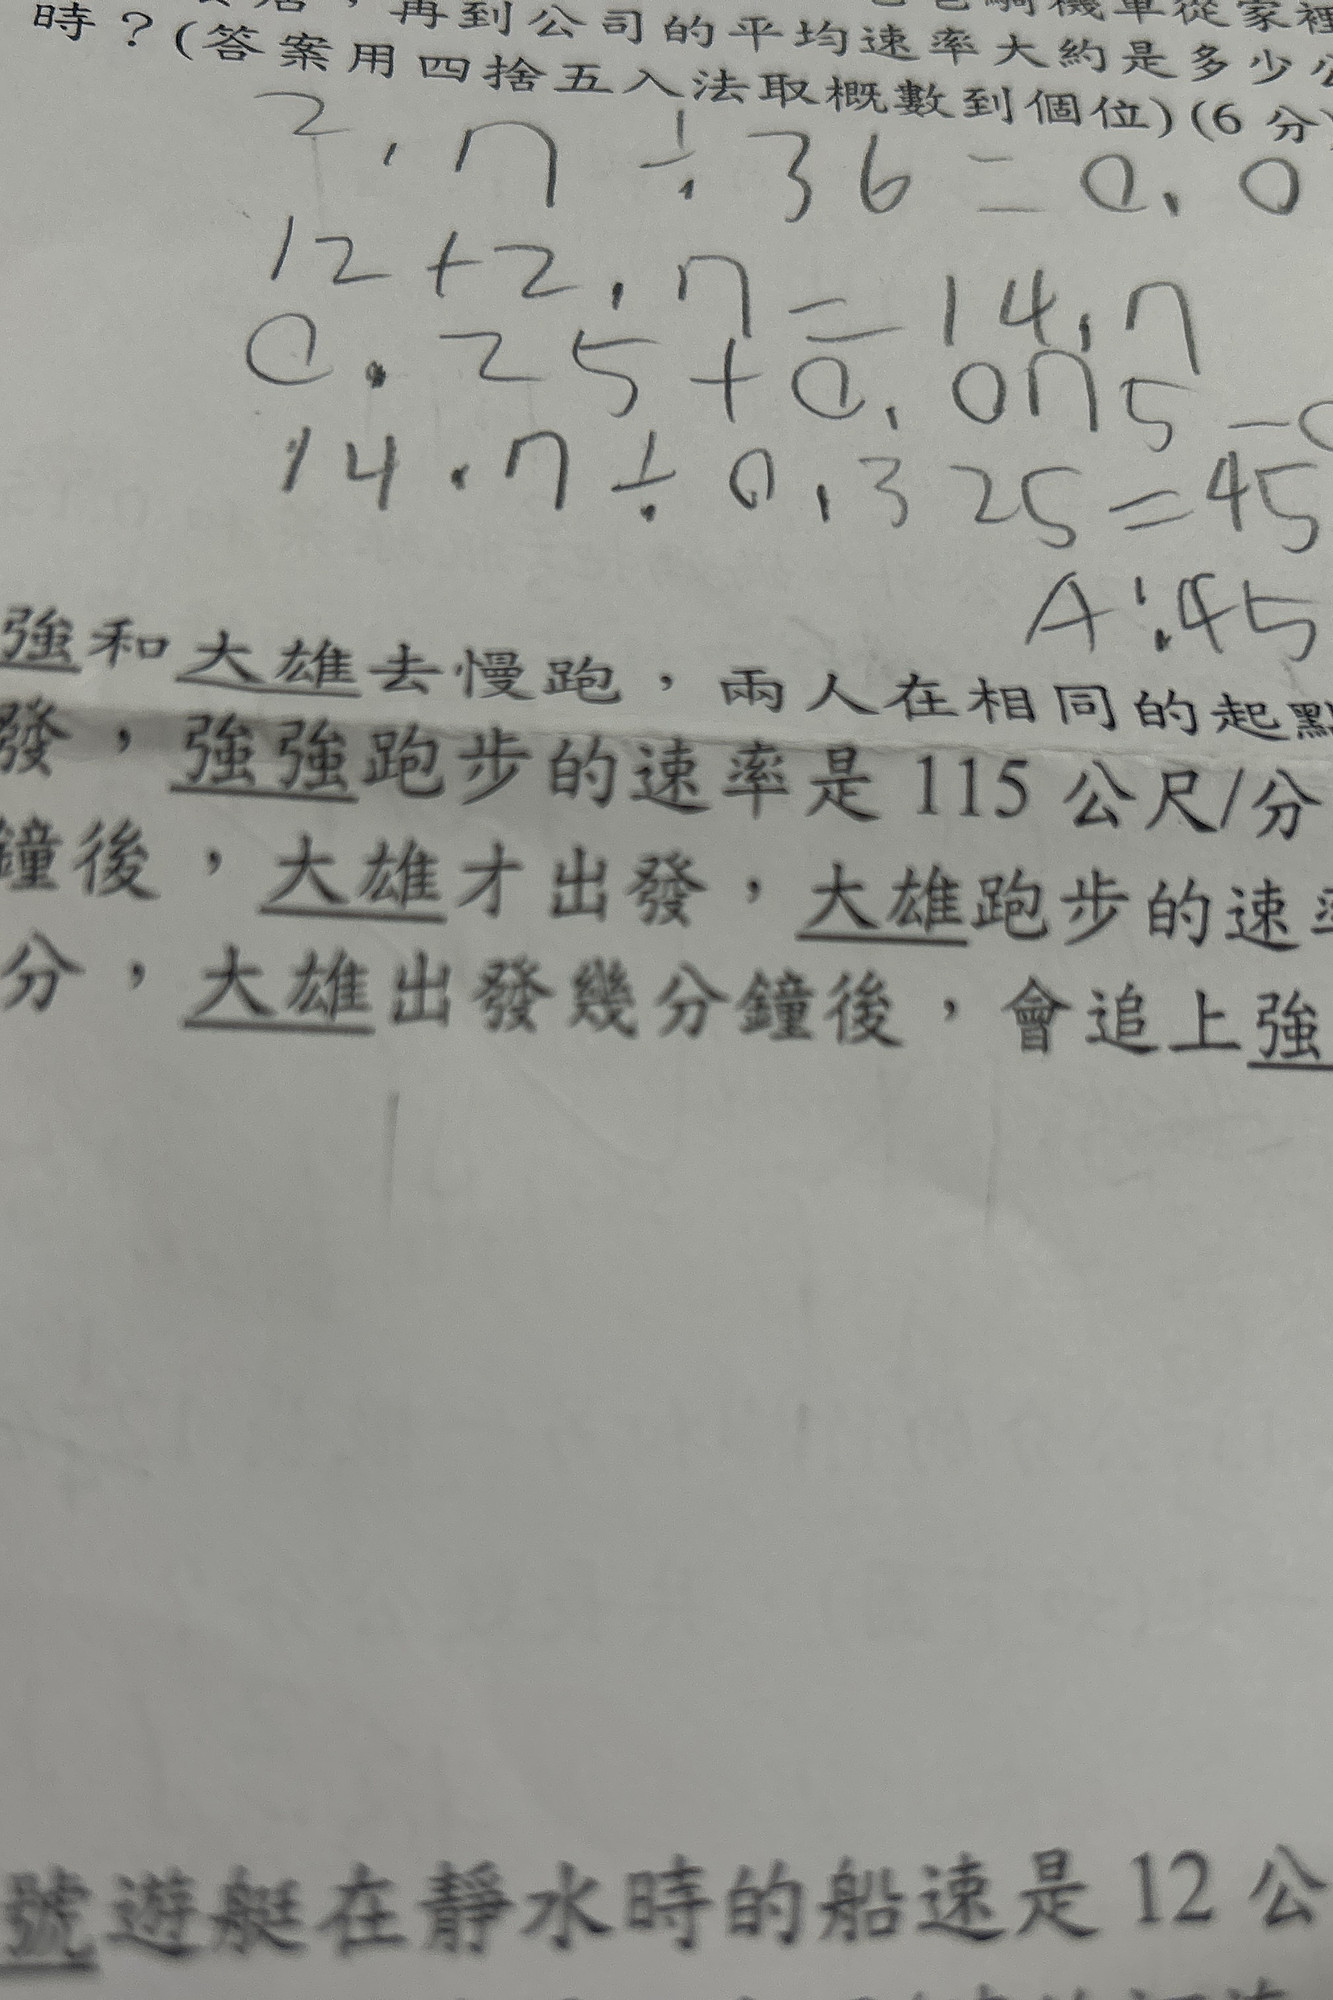 再到公司的平均速率大約是多少
時？(答案用四捨五入法取概數到個位)(6 分)
2.7÷36=0.0
12+2.7=14.7
0.25+0.075=
14.7÷0.325=45
A:45
強和大雄去慢跑，兩人在相同的起點
發，強強跑步的速率是 115 公尺/分
鐘後，大雄才出發，大雄跑步的速率
分，大雄出發幾分鐘後，會追上強
號遊艇在靜水時的船速是 12 公